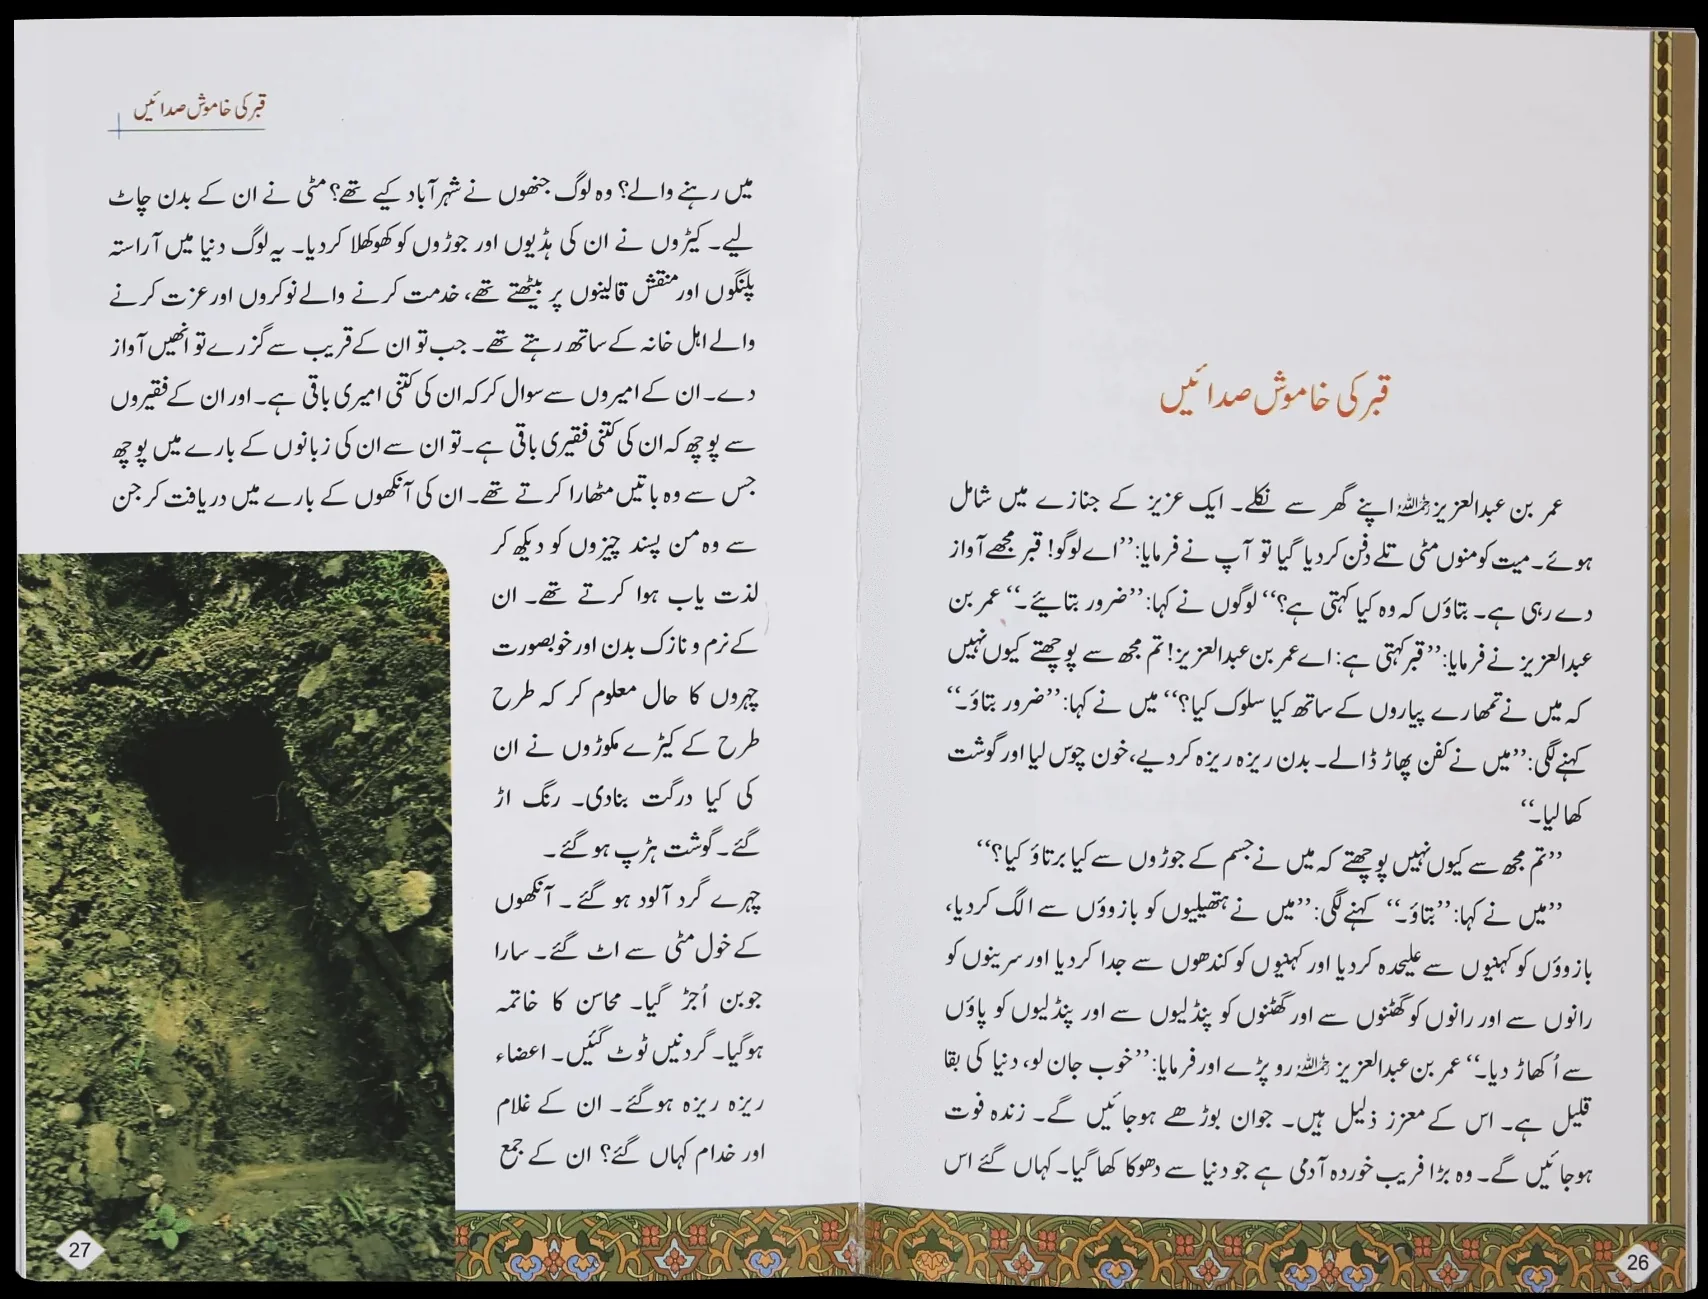 قبر کی خاموش صدائیں
عمر بن عبدالعزیز رحمہ اللہ اپنے گھر سے نکلے۔ ایک عزیز کے جنازے میں شامل
ہوئے۔ میت کو منوں مٹی تلے دفن کردیا گیا تو آپ نے فرمایا: ’’اے لوگو! قبر مجھے آواز
دے رہی ہے۔ بتاؤں کہ وہ کیا کہتی ہے؟‘‘ لوگوں نے کہا: ’’ضرور بتایئے۔‘‘ عمر بن
عبدالعزیز نے فرمایا: ’’قبر کہتی ہے: اے عمر بن عبدالعزیز! تم مجھ سے پوچھتے کیوں نہیں
کہ میں نے تمھارے پیاروں کے ساتھ کیا سلوک کیا؟‘‘ میں نے کہا: ’’ضرور بتاؤ۔‘‘
کہنے لگی: ’’میں نے کفن پھاڑ ڈالے۔ بدن ریزہ ریزہ کردیے، خون چوس لیا اور گوشت
کھا لیا۔‘‘
’’تم مجھ سے کیوں نہیں پوچھتے کہ میں نے جسم کے جوڑوں سے کیا برتاؤ کیا؟‘‘
’’میں نے کہا: ’’بتاؤ۔‘‘ کہنے لگی: ’’میں نے ہتھیلیوں کو بازوؤں سے الگ کردیا،
بازوؤں کو کہنیوں سے علیحدہ کردیا اور کہنیوں کو کندھوں سے جدا کردیا اور سرینوں کو
رانوں سے اور رانوں کو گھٹنوں سے اور گھٹنوں کو پنڈلیوں سے اور پنڈلیوں کو پاؤں
سے اُکھاڑ دیا۔‘‘ عمر بن عبدالعزیز رحمہ اللہ رو پڑے اور فرمایا: ’’خوب جان لو، دنیا کی بقا
قلیل ہے۔ اس کے معزز ذلیل ہیں۔ جوان بوڑھے ہوجائیں گے۔ زندہ فوت
ہوجائیں گے۔ وہ بڑا فریب خوردہ آدمی ہے جو دنیا سے دھوکا کھا گیا۔ کہاں گئے اس
26
قبر کی خاموش صدائیں
میں رہنے والے؟ وہ لوگ جنھوں نے شہر آباد کیے تھے؟ مٹی نے ان کے بدن چاٹ
لیے۔ کیڑوں نے ان کی ہڈیوں اور جوڑوں کو کھوکھلا کردیا۔ یہ لوگ دنیا میں آراستہ
پلنگوں اور منقش قالینوں پر بیٹھتے تھے، خدمت کرنے والے نوکروں اور عزت کرنے
والے اہل خانہ کے ساتھ رہتے تھے۔ جب تو ان کے قریب سے گزرے تو انھیں آواز
دے۔ ان کے امیروں سے سوال کر کہ ان کی کتنی امیری باقی ہے۔ اور ان کے فقیروں
سے پوچھ کہ ان کی کتنی فقیری باقی ہے۔ تو ان سے ان کی زبانوں کے بارے میں پوچھ
جس سے وہ باتیں مٹھارا کرتے تھے۔ ان کی آنکھوں کے بارے میں دریافت کر جن
سے وہ من پسند چیزوں کو دیکھ کر
لذت یاب ہوا کرتے تھے۔ ان
کے نرم و نازک بدن اور خوبصورت
چہروں کا حال معلوم کر کہ طرح
طرح کے کیڑے مکوڑوں نے ان
کی کیا درگت بنادی۔ رنگ اڑ
گئے۔ گوشت ہڑپ ہو گئے۔
چہرے گرد آلود ہو گئے۔ آنکھوں
کے خول مٹی سے اٹ گئے۔ سارا
جوبن اُجڑ گیا۔ محاسن کا خاتمہ
ہوگیا۔ گردنیں ٹوٹ گئیں۔ اعضاء
ریزہ ریزہ ہوگئے۔ ان کے غلام
اور خدام کہاں گئے؟ ان کے جمع
27